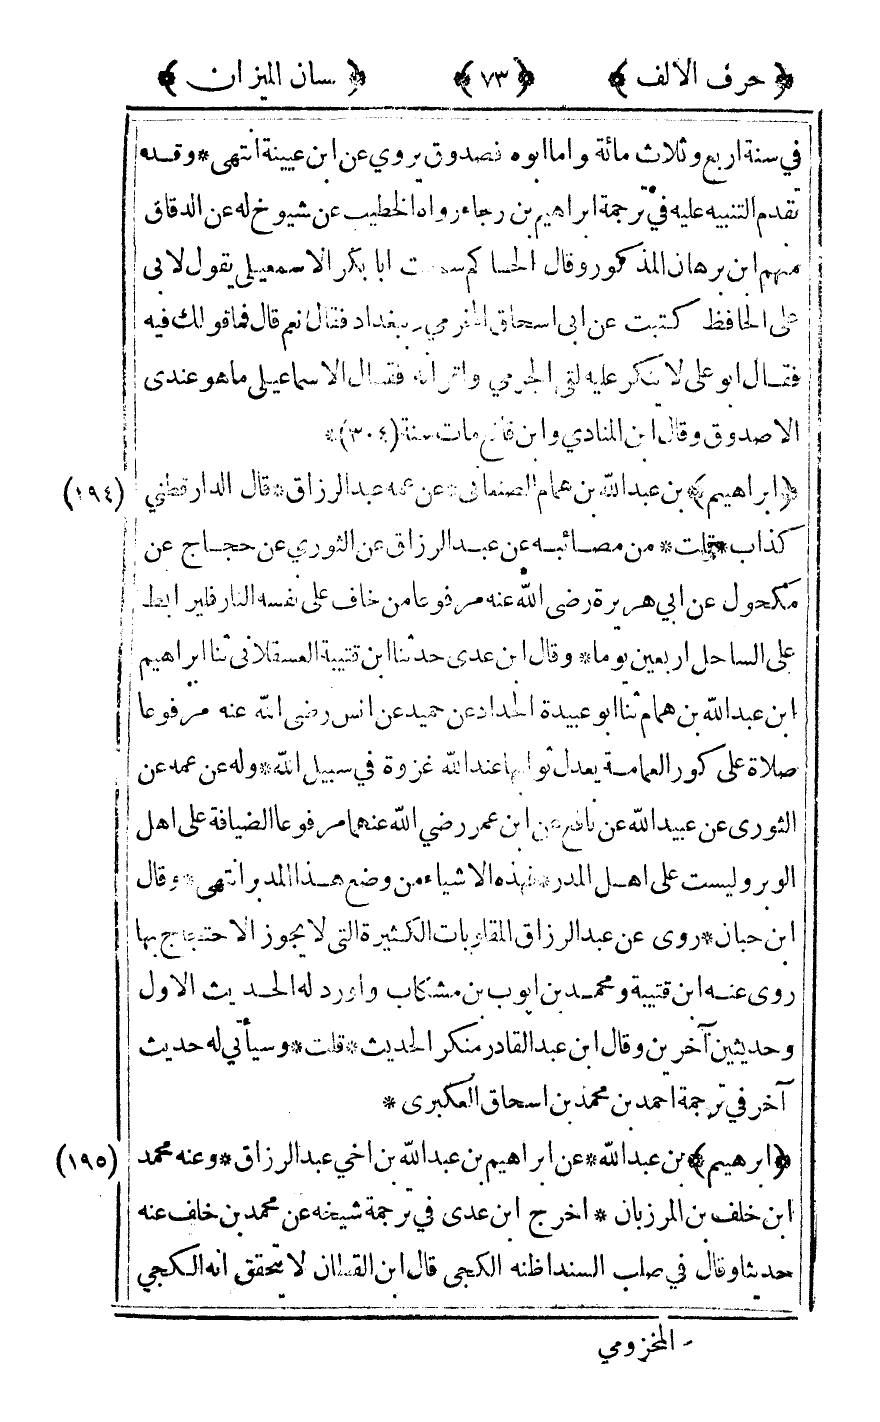 ﴿ حرف الالف ﴾ ﴿ ٧٣ ﴾ ﴿ لسان الميزان ﴾
في سنة اربع وثلاث مائة واما ابوه فصدوق يروي عن ابن عيينة انتهى * وقد
تقدم التنبيه عليه في ترجمة ابراهيم بن رجاء رواه الخطيب عن شيوخ له عن الدقاق
منهم ابن برهان المذكور وقال الحاكم سمعت ابا بكر الاسمعيلي يقول لابى
على الحافظ كتبت عن ابى اسحاق المخرمي ببغداد فقال نعم قال فما قولك فيه
فقال ابو على لا ينكر عليه لقى الجرمي واقرانه فقال الاسماعيلي ما هو عندى
الا صدوق وقال ابن المنادي وابن قانع مات سنة (٣٠٤) *
﴿ ابراهيم ﴾ بن عبد الله بن همام الصنعانى * عن عمه عبد الرزاق * قال الدارقطني (١٩٤)
كذاب * قلت * من مصائبه عن عبد الرزاق عن الثوري عن حجاج عن
مكحول عن ابي هريرة رضى الله عنه مرفوعا من خاف على نفسه النار فليرابط
على الساحل اربعين يوما * وقال ابن عدى حدثنا ابن قتيبة العسقلانى ثنا ابراهيم
ابن عبد الله بن همام ثنا ابو عبيدة الحداد عن حميد عن انس رضى الله عنه مرفوعا
صلاة على كور العمامة يعدل ثوابها عند الله غزوة في سبيل الله * وله عن عمه عن
الثورى عن عبيد الله عن نافع عن ابن عمر رضي الله عنهما مرفوعا الضيافة على اهل
الوبر وليست على اهل المدر * فهذه الاشياء من وضع هذا المدبر انتهى * وقال
ابن حبان * روى عن عبد الرزاق المقلوبات الكثيرة التى لا يجوز الاحتجاج بها
روى عنه ابن قتيبة ومحمد بن ايوب بن مشكاب واورد له الحديث الاول
وحديثين آخرين وقال ابن عبد القادر منكر الحديث * قلت * وسيأتي له حديث
آخر في ترجمة احمد بن محمد بن اسحاق العكبرى *
﴿ ابرهيم ﴾ بن عبد الله * عن ابراهيم بن عبد الله بن اخي عبد الرزاق * وعنه محمد (١٩٥)
ابن خلف بن المرزبان * اخرج ابن عدى في ترجمة شيخه عن محمد بن خلف عنه
حديثا وقال في صلب السند اظنه الكجى قال ابن القطان لا يتحقق انه الكجي
- المخزومي